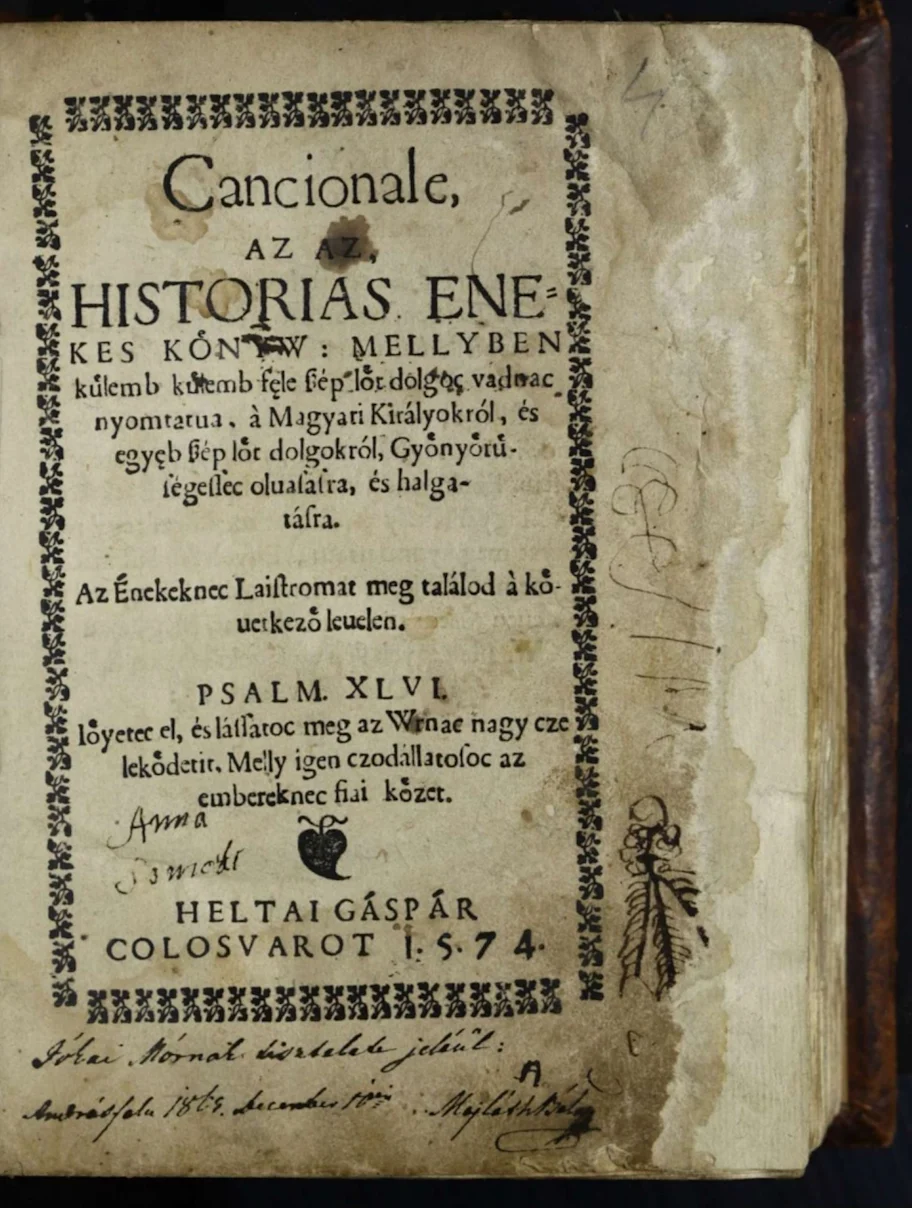 Cancionale,
AZ AZ,
HISTORIAS ENE-
KES KŐNYW: MELLYBEN
kűlemb kűlemb fęle ßép lőt dolgoc vadnac
nyomtatua, à Magyari Királyokról, és
egyęb ßép lőt dolgokról, Győnyőrű-
ſégeſſec oluaſaſra, és halga-
táſra.
Az Énekeknec Laiſtromat meg találod à kő-
uetkező leuelen.
PSALM. XLVI.
Iőyetec el, és láſſatoc meg az Wrnac nagy cze
lekődetit. Melly igen czodállatoſoc az
embereknec fiai kőzet.
Anna
HELTAI GÁSPÁR
COLOSVAROT 1.5.74.
Jókai Mórnak tisztelete jeléűl:
Andrásfalu december Majláth Béla
4